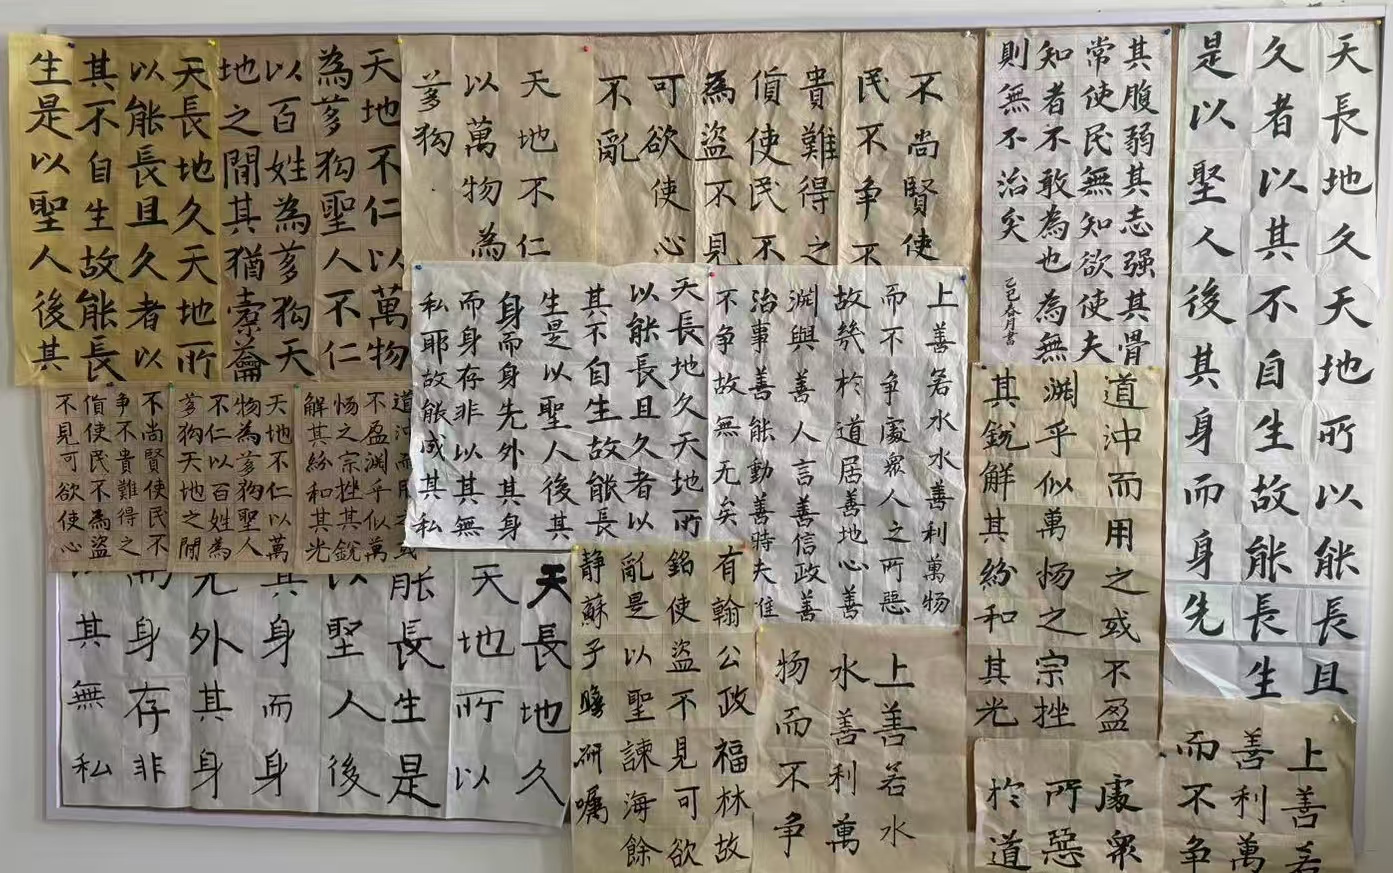 天長地久天地所以能長且
久者以其不自生故能長生
是以聖人後其身而身先
其腹弱其志强其骨
常使民無知欲使夫
知者不敢為也為無
則無不治矣
乙巳春月書
不尚賢使
民不争不
貴難得之
貨使民不
為盗不見
可欲使心
不亂
天地不仁
以萬物為
芻狗
天地不仁以萬物
為芻狗聖人不仁
以百姓為芻狗天
地之間其猶橐籥
天長地久天地所
以能長且久者以
其不自生故能長
生是以聖人後其
上善若水水善利萬物
而不争處衆人之所惡
故幾於道居善地心善
渊與善人言善信政善
治事善能動善時夫惟
不争故無尤矣
天長地久天地所
以能長且久者以
其不自生故能長
生是以聖人後其
身而身先外其身
而身存非以其無
私耶故能成其私
道沖而用之或不盈
渊乎似萬物之宗挫
其銳解其紛和其光
道沖而用之或
不盈渊乎似萬
物之宗挫其銳
解其紛和其光
天地不仁以萬
物為芻狗聖人
不仁以百姓為
芻狗天地之間
不尚賢使民不
争不貴難得之
貨使民不為盗
不見可欲使心
上善若
善利萬
而不争
處衆
所惡
於道
上善若水
水善利萬
物而不争
有翰公政福林故
銘使盗不見可欲
亂是以聖諫海餘
静蘇子瞻研嘱
天長地久
天地所以
能長生是
以聖人後
其身而身
先外其身
而身存非
以其無私